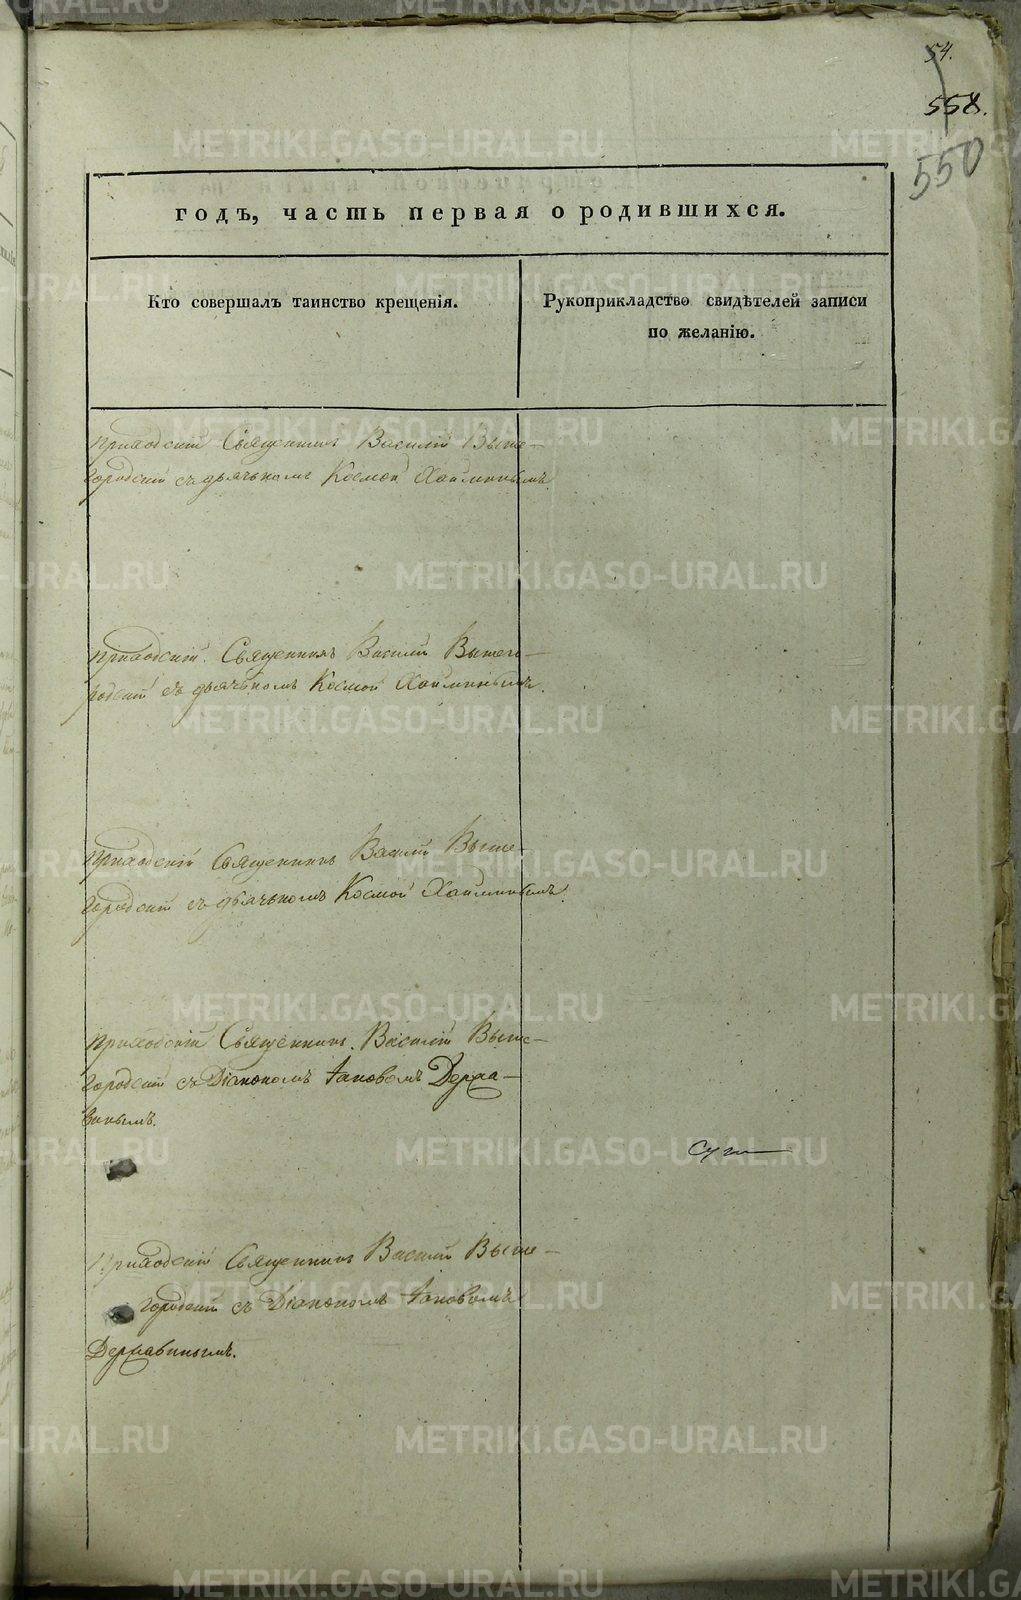 54.
558.
550
годъ, часть первая о родившихся.
Кто совершалъ таинство крещенія.
Рукоприкладство свидѣтелей записи
по желанію.
Приходскій Священникъ Василій Выше-
городскій съ дьячькомъ Космой Хойминымъ.
Приходскій Священникъ Василій Вышего-
родскій съ дьячькомъ Космой Хойминымъ.
Приходскій Священникъ Василій Выше-
городскій съ дьячькомъ Космой Хойминымъ.
Приходскій Священникъ Василій Выше-
городскій съ Діакономъ Іаковомъ Держа-
винымъ.
Приходскій Священникъ Василій Выше-
городскій съ Діакономъ Іаковомъ
Державинымъ.
METRIKI.GASO-URAL.RU